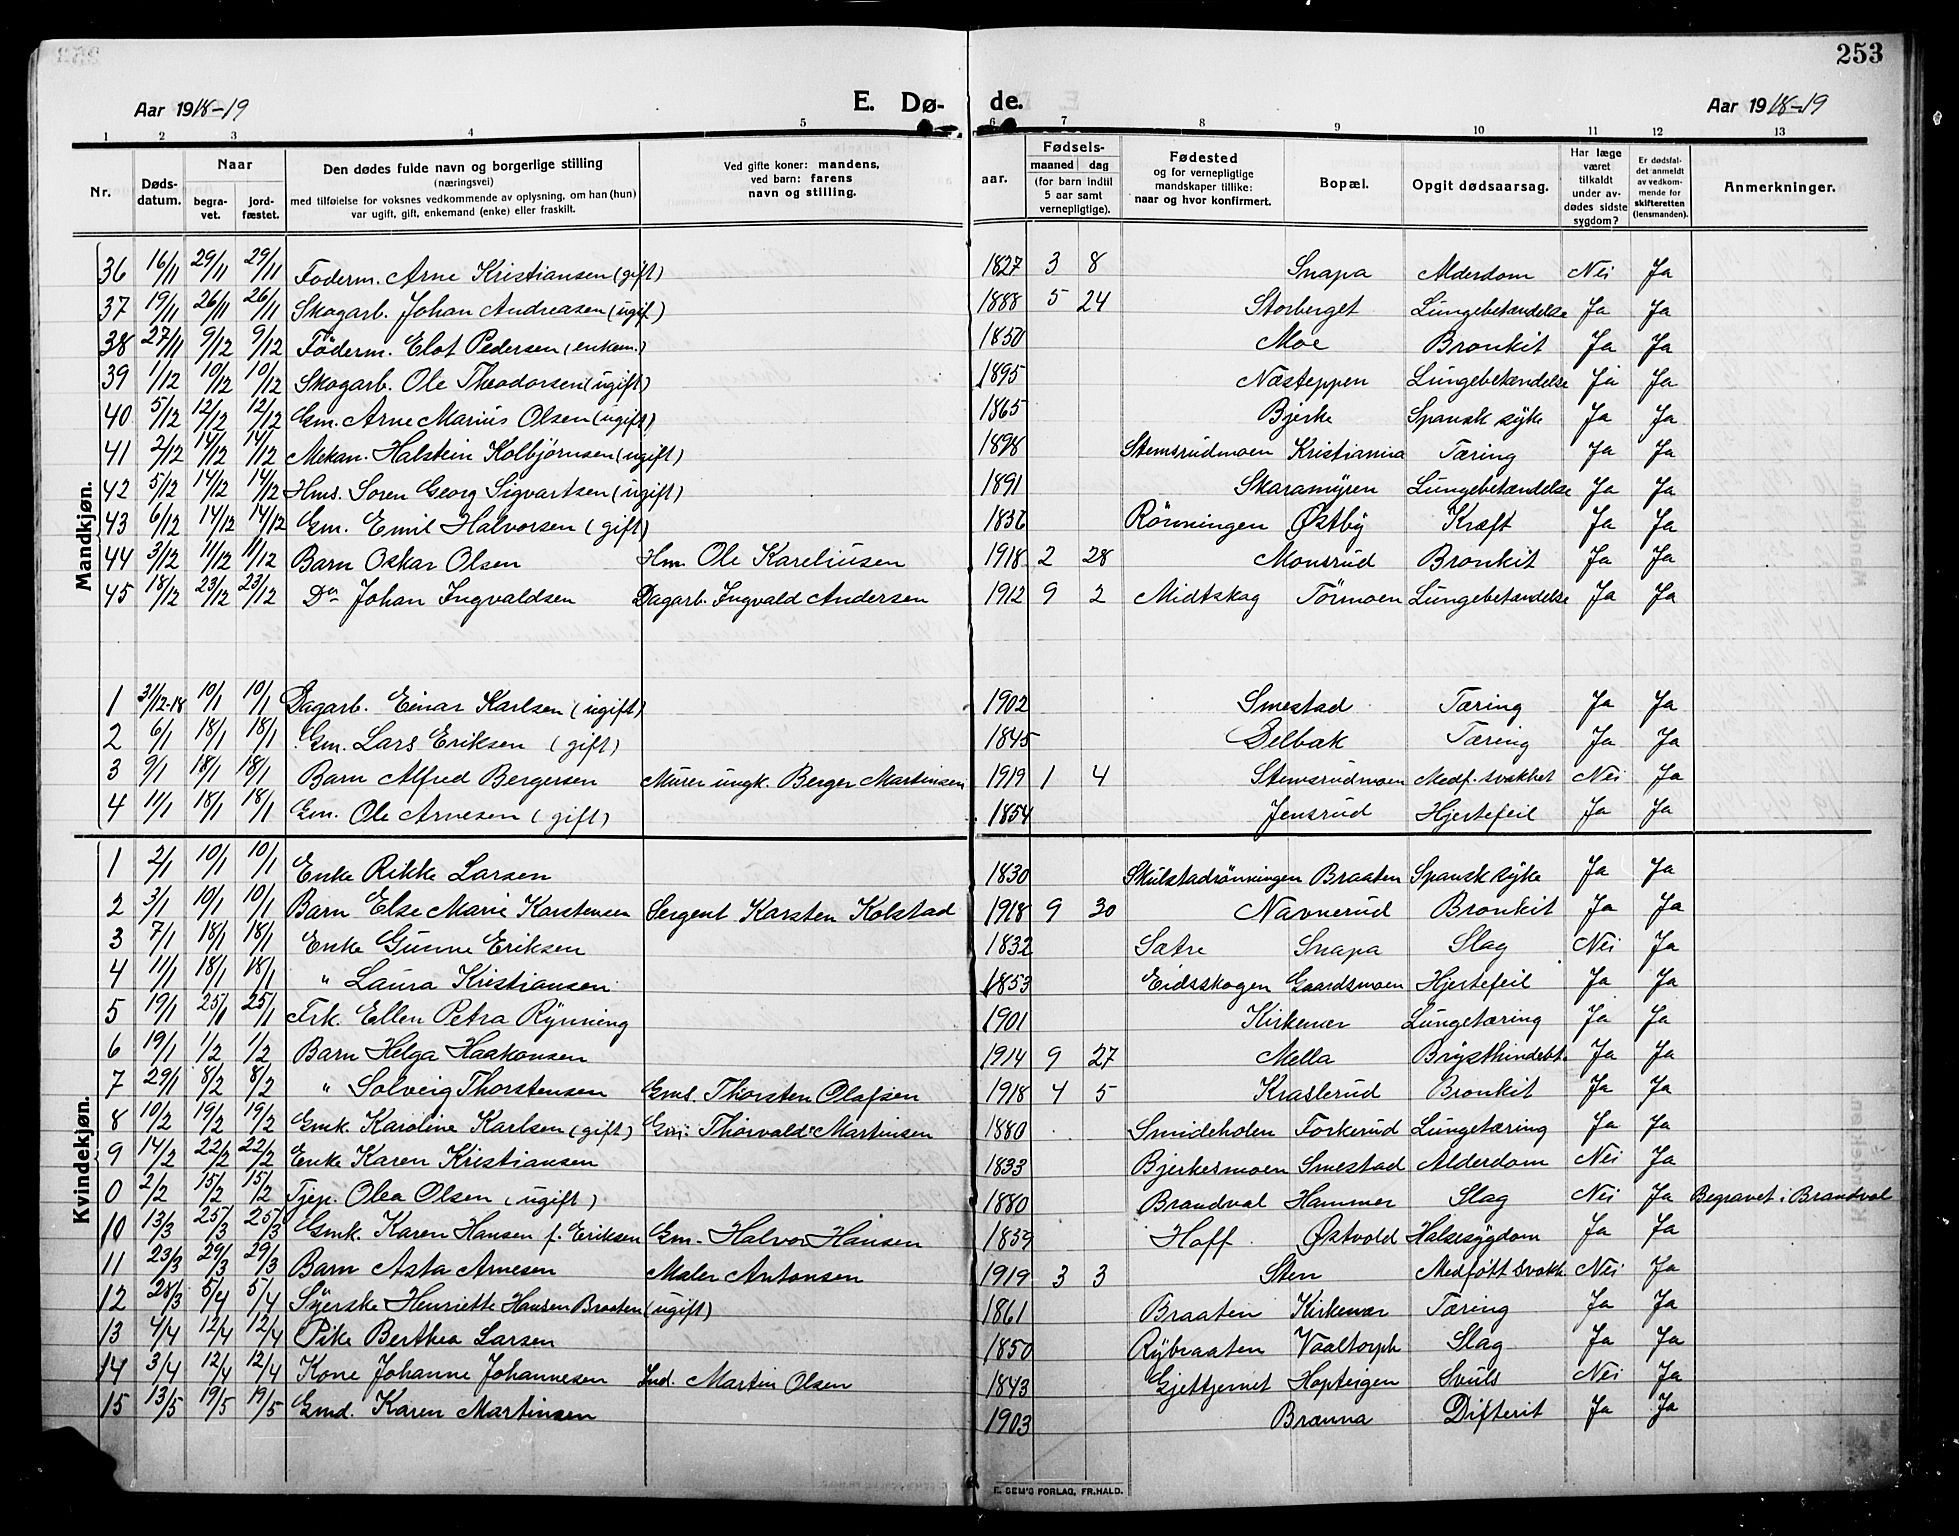 253
Aar 1918-19 E. Dø- de. Aar 1918-19
1 2 3 4 5 6 7 8 9 10 11 12 13
Nr. Døds-datum. Naar begra-vet. jord-fæstet. Den dødes fulde navn og borgerlige stilling (næringsvei) med tilføielse for voksnes vedkommende av oplysning, om han (hun) var ugift, gift, enkemand (enke) eller fraskilt. Ved gifte koner: mandens, ved barn: farens navn og stilling. Fødsels- aar. maaned dag (for barn indtil 5 aar samt vernepligtige). Fødested og for vernepligtige mandskaper tillike: naar og hvor konfirmert. Bopæl. Opgit dødsaarsag. Har læge været tilkaldt under av-dødes sidste sygdom? Er dødsfal-det anmeldt av vedkom-mende for skifteretten (lensmanden). Anmerkninger.
Mandkjøn.
36 16/11 29/11 29/11 Føderm. Arne Kristiansen (gift) 1827 3 8 Snapa Alderdom Nei Ja
37 19/11 26/11 26/11 Skogarb. Johan Andreasen (ugif.) 1888 5 24 Storberget Lungebetændelse Ja Ja
38 27/11 9/12 9/12 Føderm. Elot Pedersen (enkem.) 1850 Moe Bronkit Ja Ja
39 1/12 10/12 10/12 Skogarb. Ole Theodorsen (ugift) 1895 Næsteppen Lungebetændelse Ja Ja
40 5/12 12/12 12/12 Gm. Arne Marius Olsen (ugift) 1865 Bjerke Spansk syke Ja Ja
41 2/12 14/12 14/12 Mekan. Halstein Kolbjørnsen (ugift) 1898 Stemsrudmoen Kristiania Tæring Ja Ja
42 5/12 14/12 14/12 Hms. Soren Georg Sigvartsen (ugift) 1891 Skaramyren Lungebetændelse Ja Ja
43 6/12 14/12 14/12 Gm. Emil Halvorsen (gift) 1836 Rønningen Østby Kræft Ja Ja
44 3/12 11/12 11/12 Barn Oskar Olsen Hm. Ole Kareliusen 1918 2 28 Monsrud Bronkit Ja Ja
45 18/12 23/12 23/12 Do Johan Ingvaldsen Dagarb. Ingvald Andersen 1912 9 2 Midtskog Tørmoen Lungebetændelse Ja Ja
1 31/12-18 10/1 10/1 Dagarb. Einar Karlsen (ugift) 1902 Smestad Tæring Ja Ja
2 6/1 18/1 18/1 Gm. Lars Eriksen (gift) 1845 Selbæk Tæring Ja Ja
3 9/1 18/1 18/1 Barn Alfred Bergersen Murer ungk. Berger Martinsen 1919 1 4 Stemsrudmoen Medf. svakhet Nei Ja
4 11/1 18/1 18/1 Gm. Ole Arnesen (gift) 1854 Jensrud Hjertefeil Ja Ja
Kvindekjøn.
1 2/1 10/1 10/1 Enke Rikke Larsen 1830 Skulstadrønningen Braaten Spansk syke Ja Ja
2 3/1 10/1 10/1 Barn Else Marie Karstensen Sergent Karsten Kolstad 1918 9 30 Navnerud Bronkit Ja Ja
3 7/1 18/1 18/1 Enke Gunne Eriksen 1832 Sætre Snapa Slag Nei Ja
4 11/1 18/1 18/1 " Laura Kristiansen 1853 Eidsskogen Gaardsmoen Hjertefeil Ja Ja
5 19/1 25/1 25/1 Frk. Ellen Petra Rynning 1901 Kirkenær Lungetæring Ja Ja
6 19/1 1/2 1/2 Barn Helga Haakonsen 1914 9 27 Mella Brysthindebt. Ja Ja
7 29/1 8/2 8/2 " Solveig Thorstensen Gms. Thorsten Olafsen 1918 4 5 Kraslerud Bronkit Ja Ja
8 10/2 19/2 19/2 Gmk. Karoline Karlsen (gift) Gm. Thorvald Martinsen 1880 Smideholen Forkerud Lungetæring Ja Ja
9 14/2 22/2 22/2 Enke Karen Kristiansen 1833 Bjerkesmoen Smestad Alderdom Nei Ja
0 2/2 15/2 15/2 Tjep. Olea Olsen (ugift) 1880 Brandval Hammer Slag Nei Ja Begravet i Brandval
10 13/3 25/3 25/3 Gmk. Karen Hansen f. Eriksen Gm. Halvor Hansen 1859 Hoff Østvold Halsesygdom Ja Ja
11 23/3 29/3 29/3 Barn Asta Arnesen Maler Antonsen 1919 3 3 Sten Medfött svakh. Nei Ja
12 28/3 5/4 5/4 Syerske Henriette Hansen Braaten (ugift) 1861 Braaten Kirkenær Tæring Ja Ja
13 4/4 12/4 12/4 Pike Berthea Larsen 1850 Rybraaten Vaaltorph Slag Ja Ja
14 3/4 12/4 12/4 Kone Johanne Johannesen Ind. Martin Olsen 1843 Gjettjernet Hopteigen Svuls Nei Ja
15 13/5 19/5 19/5 Gmd. Karen Martinsen 1903 Brænna Difterit Ja Ja
E. SEM'S FORLAG, FR.HALD.